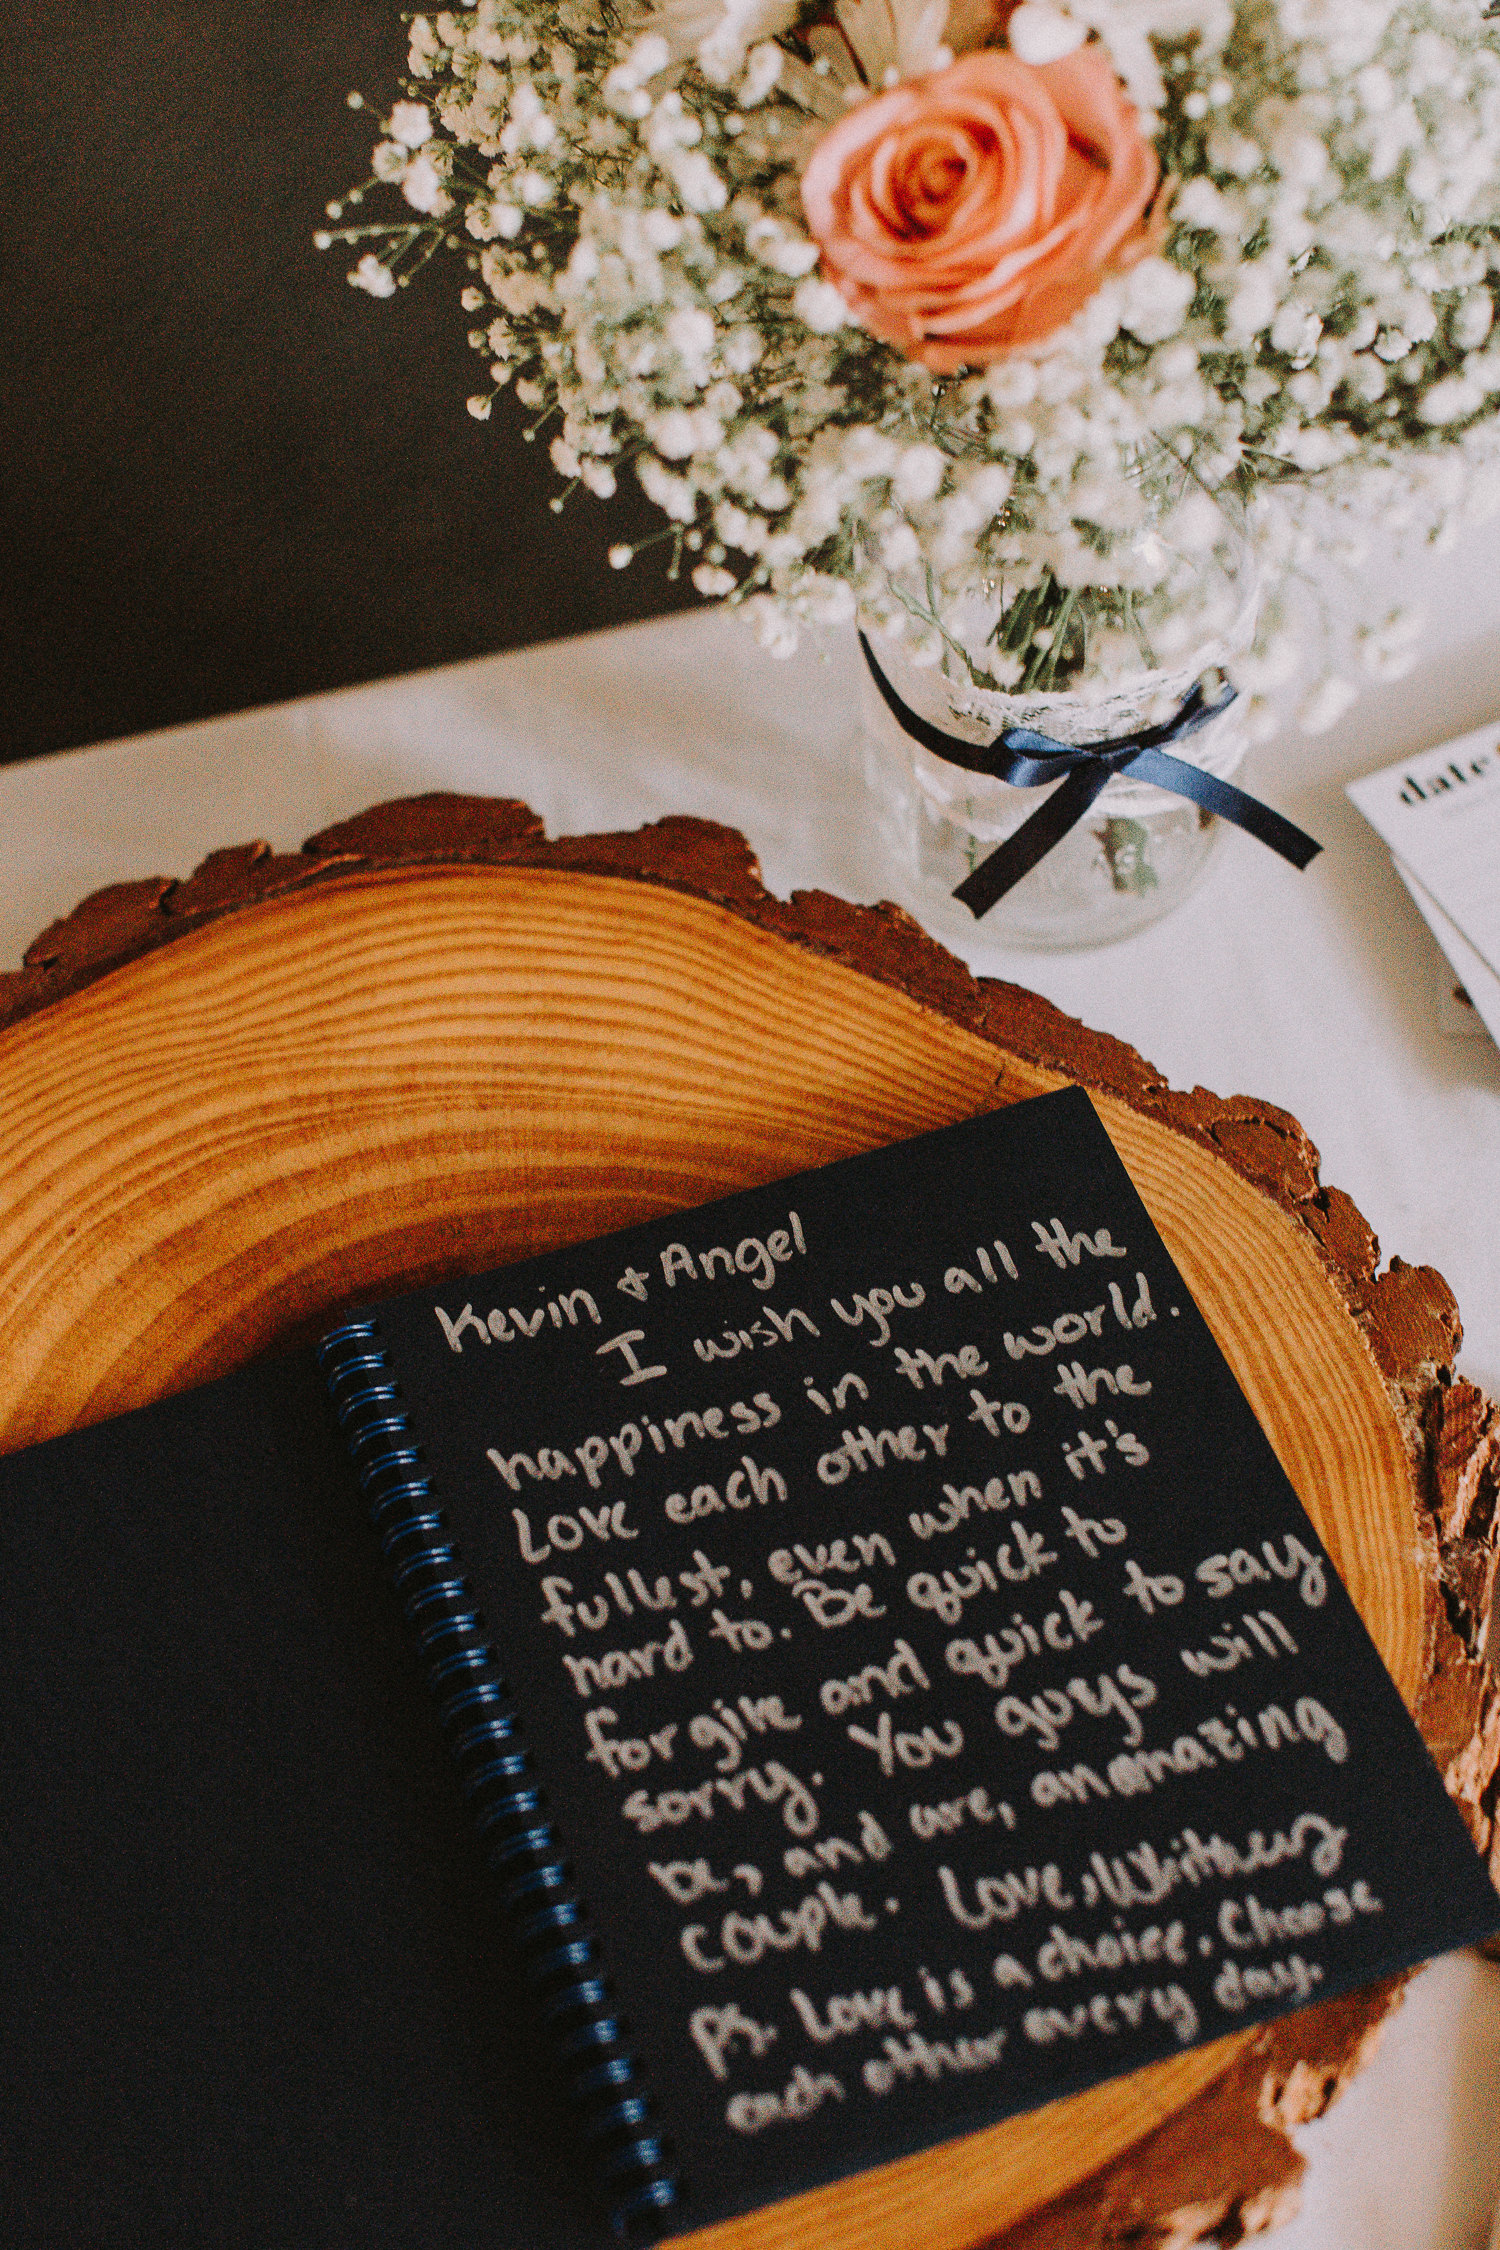 date
Kevin & Angel
I wish you all the
happiness in the world.
Love each other to the
fullest, even when it's
hard to. Be quick to
forgive and quick to say
sorry. You guys will
be, and are, an amazing
couple. Love, Whitney
PS. Love is a choice. Choose
each other every day.